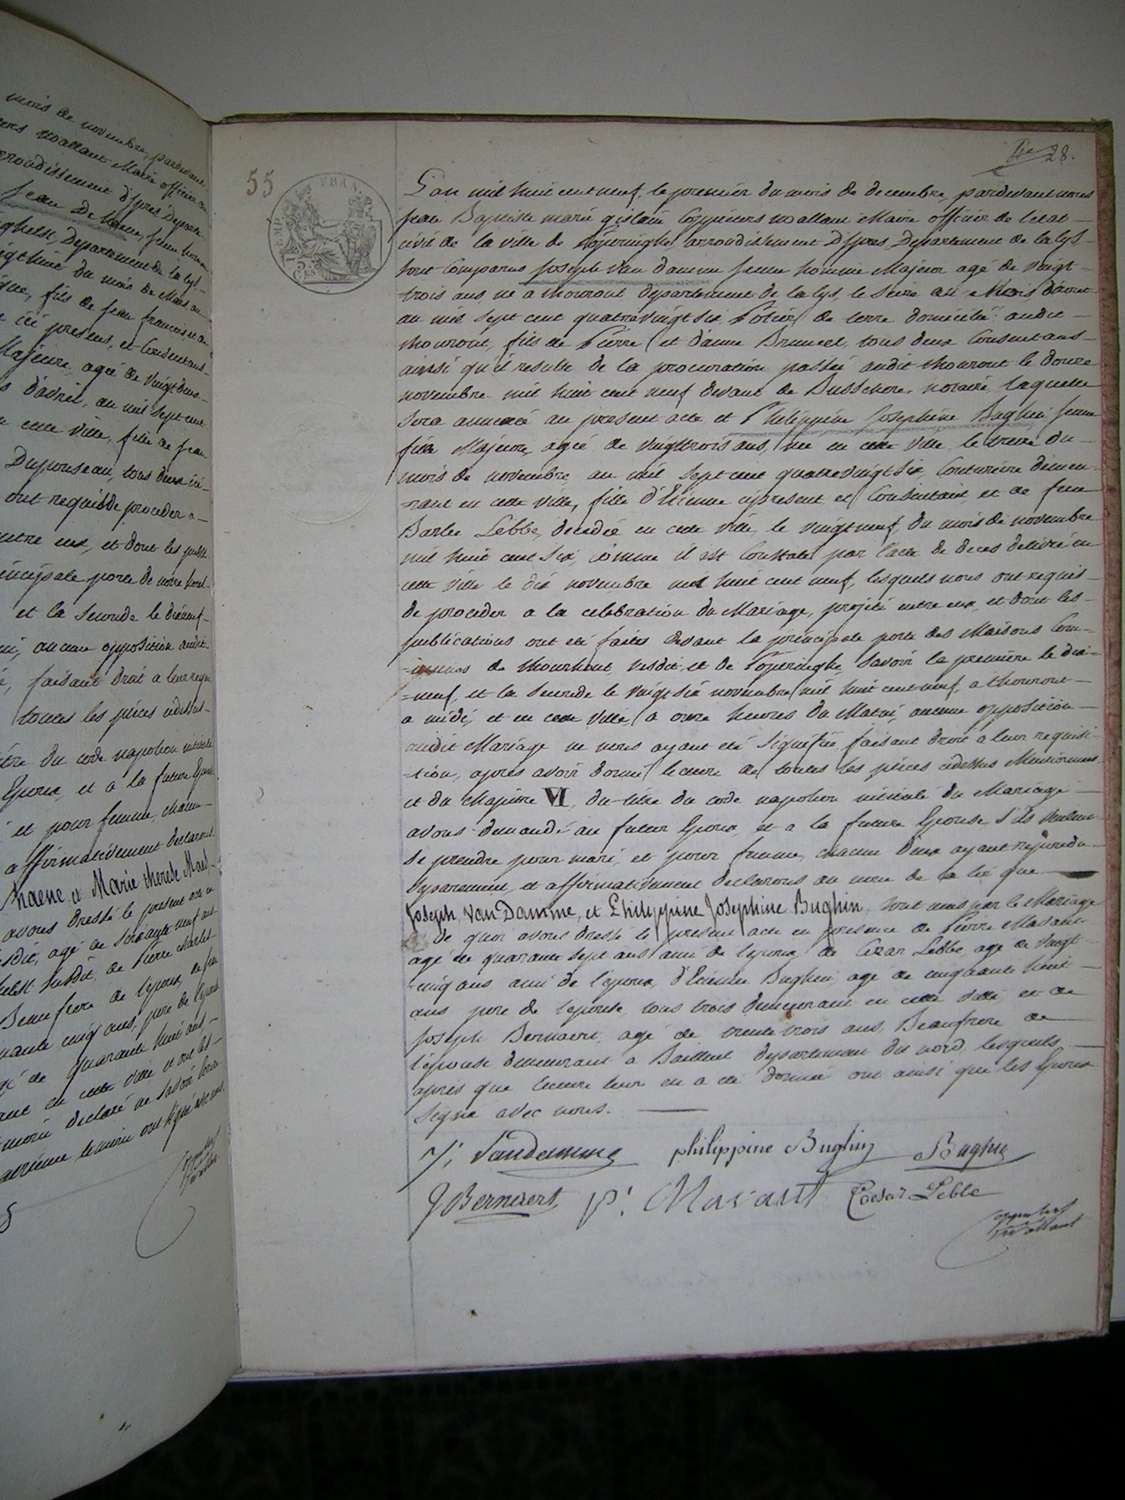 mois de novembre, pardevant
wallant Maire officier
arrondissement d'Ypres Departe
Jean De
Département de la Lys
du mois de Mars au
fils de feu francois
ici present, et Consentant
Majeure, agée de vingt deux
d'avril, au mil sept cent
cette ville, fille de feu
Duponseau, tous deux ici
ont requis de proceder a
entre eux, et dont les publi
principale porte de notre
et la seconde le dix neuf
aucune opposition audit
faisant droit a leur requi
toutes les pièces cidessus
titre du code napoléon intitulé
Epoux, et a la future Epouse
et pour femme, chacun
affirmativement declarons
et Marie therese
avons dressé le present acte
agé de soixante neuf ans
susdit de Pierre
Beaufrere de l'epoux, de
cinq ans, pere de l'epouse
de quarante huit ans
en cette ville et ont les
declaré ne savoir
ont signé avec nous
55
28.
L'an mil huit cent neuf, le premier du mois de decembre, pardevant nous
jean Baptiste marie gislain Coppieters wallant Maire officier de l'etat
civil de la ville de Poperinghe arrondissement d'Ypres Departement de la Lys
sont Comparus joseph van damme jeune homme Majeur agé de vingt
trois ans, né a thourout departement de la lys, le Seize du Mois d'aout
au mil sept cent quatrevingt six Potier de terre domicilié audit
thourout, fils de Pierre et d'anne Bruneel, tous deux Consentans
ainsi qu'il resulte de la procuration passée audit thourout le douze
novembre mil huit cent neuf devant de Busschere, notaire, laquelle
sera annexée au present acte et Philippine Josephine Bughin, jeune
fille Majeure, agée de vingt trois ans, née en cette ville le treize du
mois de novembre, au mil sept cent quatre vingt six Couturiere demeu
rant en cette ville, fille d'Etienne cipresent et Consentant et de feue
Barbe Lebbe, decedée en cette ville, le vingt neuf du mois de novembre
mil huit cent six, comme il est Constaté par l'acte de deces delivré en
cette ville le dix novembre mil huit cent neuf, lesquels nous ont requis
de proceder a la celebration du Mariage, projeté entre eux, et dont les
publications ont été faites devant la principale porte des Maisons Com
munes de thourhout, susdit, et de Poperinghe Savoir la première le dix
neuf, et la seconde le vingt six novembre mil huit cent neuf, a thourout
a midi, et en cette ville, a onze heures du Matin, aucune opposition
audit Mariage ne nous ayant été signifiée, faisant droit a leur requisi
tion, après avoir donné lecture de toutes les pièces cidessus Mentionnées
et du chapitre VI, du titre du code napoléon intitulé du Mariage
avons demandé au futur Epoux, et a la future Epouse s'ils veulent
se prendre pour mari, et pour femme, chacun d'eux ayant repondu
separement, et affirmativement declarons au nom de la loi que
Joseph van Damme, et Philippine Josephine Bughin, sont unis par le Mariage
de quoi avons dressé le present acte en presence de Pierre Masaut
agé de quarante sept ans ami de l'epoux, de Cezar Lebbe, agé de vingt
cinq ans ami de l'epoux, d'Etienne Bughin, agé de cinquante huit
ans, pere de l'epouse, tous trois demeurant en cette ville et de
Joseph Bernaert, agé de trente trois ans, Beaufrere de
l'épouse demeurant a Bailleul departement du nord, lesquels
apres que lecture leur en a été donnée ont ainsi que les Epoux
signé avec nous.
J: Vandamme philippine Bughin Bughin
J Bernaert p: Masaut Caesar Lebbe